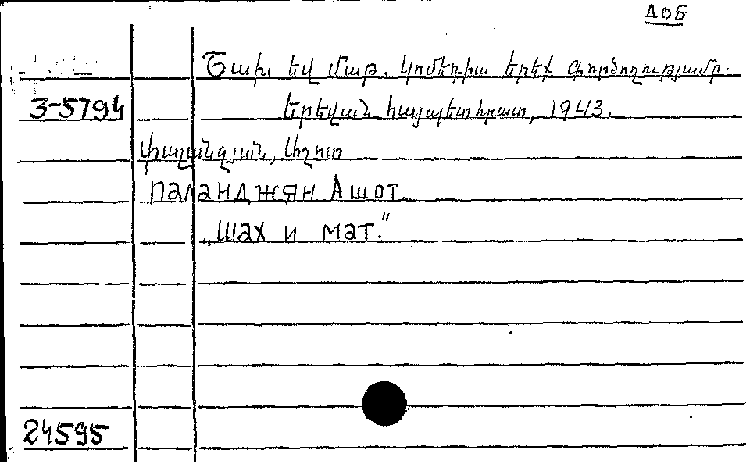 ДОБ
Շախ եվ մաթ. կոմեդիա երեք գործողությամբ.
3-5794 Երեվան, հայպետհրատ, 1943.
Փալանջյան, Աշոտ
Паланджян Ашот
„Шах и мат."
24595